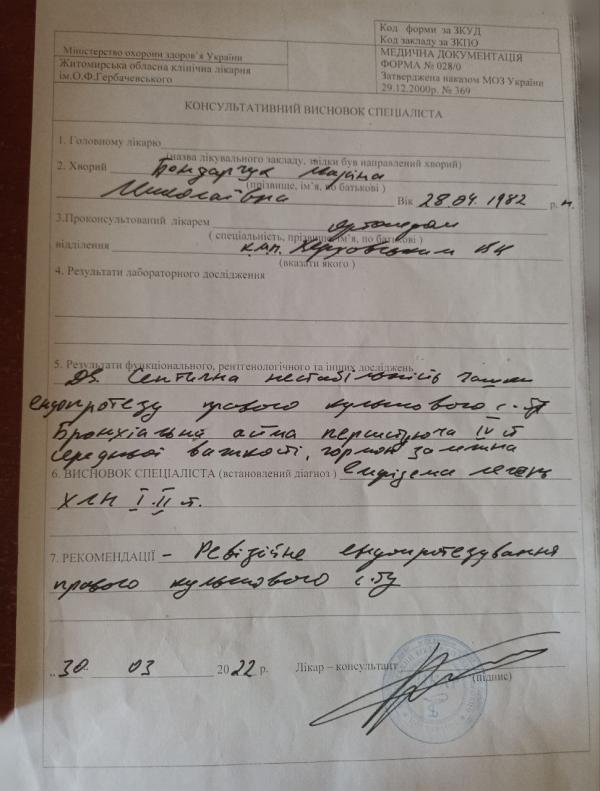 Код форми за ЗКУД
Код закладу за ЗКПО
Міністерство охорони здоров'я України
Житомирська обласна клінічна лікарня
ім.О.Ф.Гербачевського
МЕДИЧНА ДОКУМЕНТАЦІЯ
ФОРМА № 028/0
Затверджена наказом МОЗ України
29.12.2000р. № 369
КОНСУЛЬТАТИВНИЙ ВИСНОВОК СПЕЦІАЛІСТА
1. Головному лікарю
(назва лікувального закладу, звідки був направлений хворий)
2. Хворий Бондарчук Марина
(прізвище, ім'я, по батькові )
Миколаївна Вік 28 04. 1982 р. н.
3.Проконсультований лікарем ортопедом
( спеціальність, прізвище ім'я, по батькові )
відділення к.м.н.
(вказати якого )
4. Результати лабораторного дослідження
5. Результати функціонального, рентгенологічного та інших досліджень
Дз. Септична нестабільність чашки
ендопротезу правого кульшового с-бу
Бронхіальна астма персистуюча IV ст
середньої важкості, гормонзалежна
6. ВИСНОВОК СПЕЦІАЛІСТА (встановлений діагноз ) Емфізема легень
ХЛН I-II ст.
7. РЕКОМЕНДАЦІЇ – Ревізійне ендопротезування
правого кульшового с-бу
„ 30 “ 03 2022 р. Лікар – консультант
(підпис)